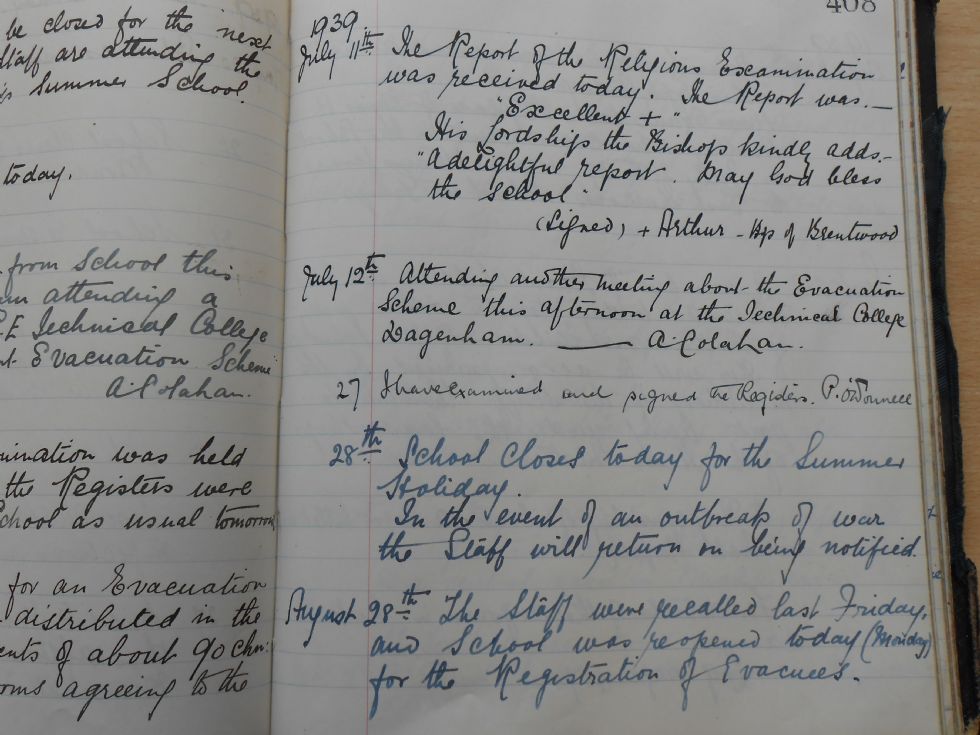 be closed for the next
Staff are attending the
Summer School.
today.
from School this
am attending a
Technical College
Evacuation Scheme
A. Colahan.
mination was held
the Registers were
School as usual tomorrow
for an Evacuation
distributed in the
ents of about 90 chn:
oms agreeing to the
408
1939
July 11th The Report of the Religious Examination
was received today. The Report was. —
"Excellent +"
His Lordships the Bishop kindly adds.-
"A delightful report. May God bless
the school"
(Signed) + Arthur - Bp of Brentwood
July 12th Attending another meeting about the Evacuation
Scheme this afternoon at the Technical College
Dagenham. — A. Colahan.
27 I have examined and signed the Registers. P. O'Donnell
28th School closes today for the Summer
Holiday.
In the event of an outbreak of war
the Staff will return on being notified.
August 28th The Staff were recalled last Friday,
and School was reopened today (Monday)
for the Registration of Evacuees.